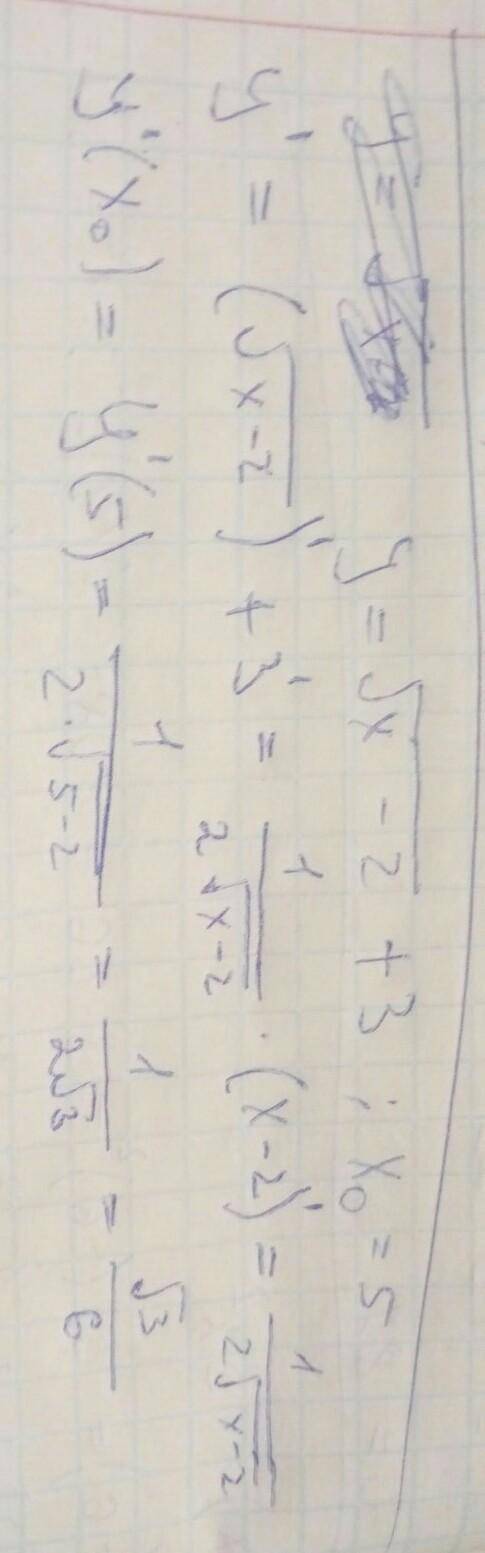 y = √(x - 2) + 3 ; x₀ = 5
y' = (√(x-2))' + 3' = 1/(2√(x-2)) · (x-2)' = 1/(2√(x-2))
y'(x₀) = y'(5) = 1/(2·√(5-2)) = 1/(2√3) = √3/6